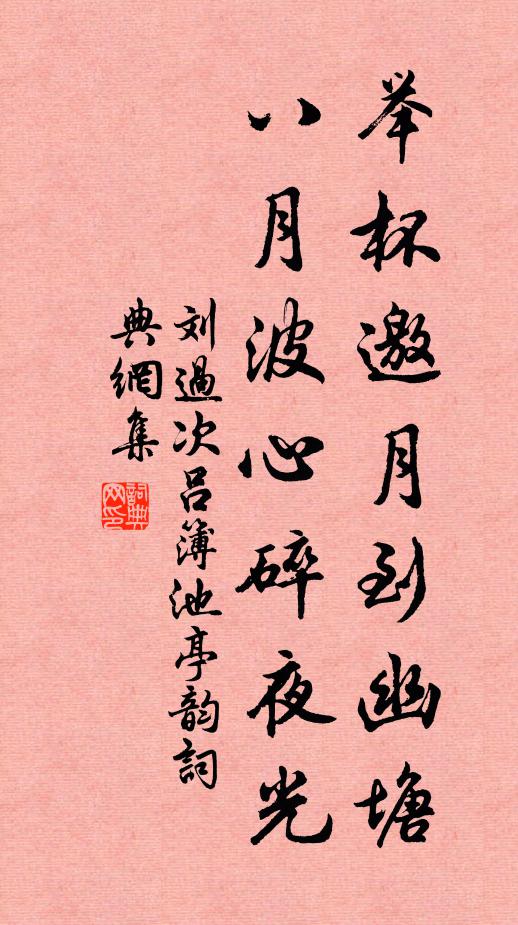 举杯邀月到幽塘
八月波心碎夜光
刘過次吕簿池亭韵詞
典網集
詞典
网印